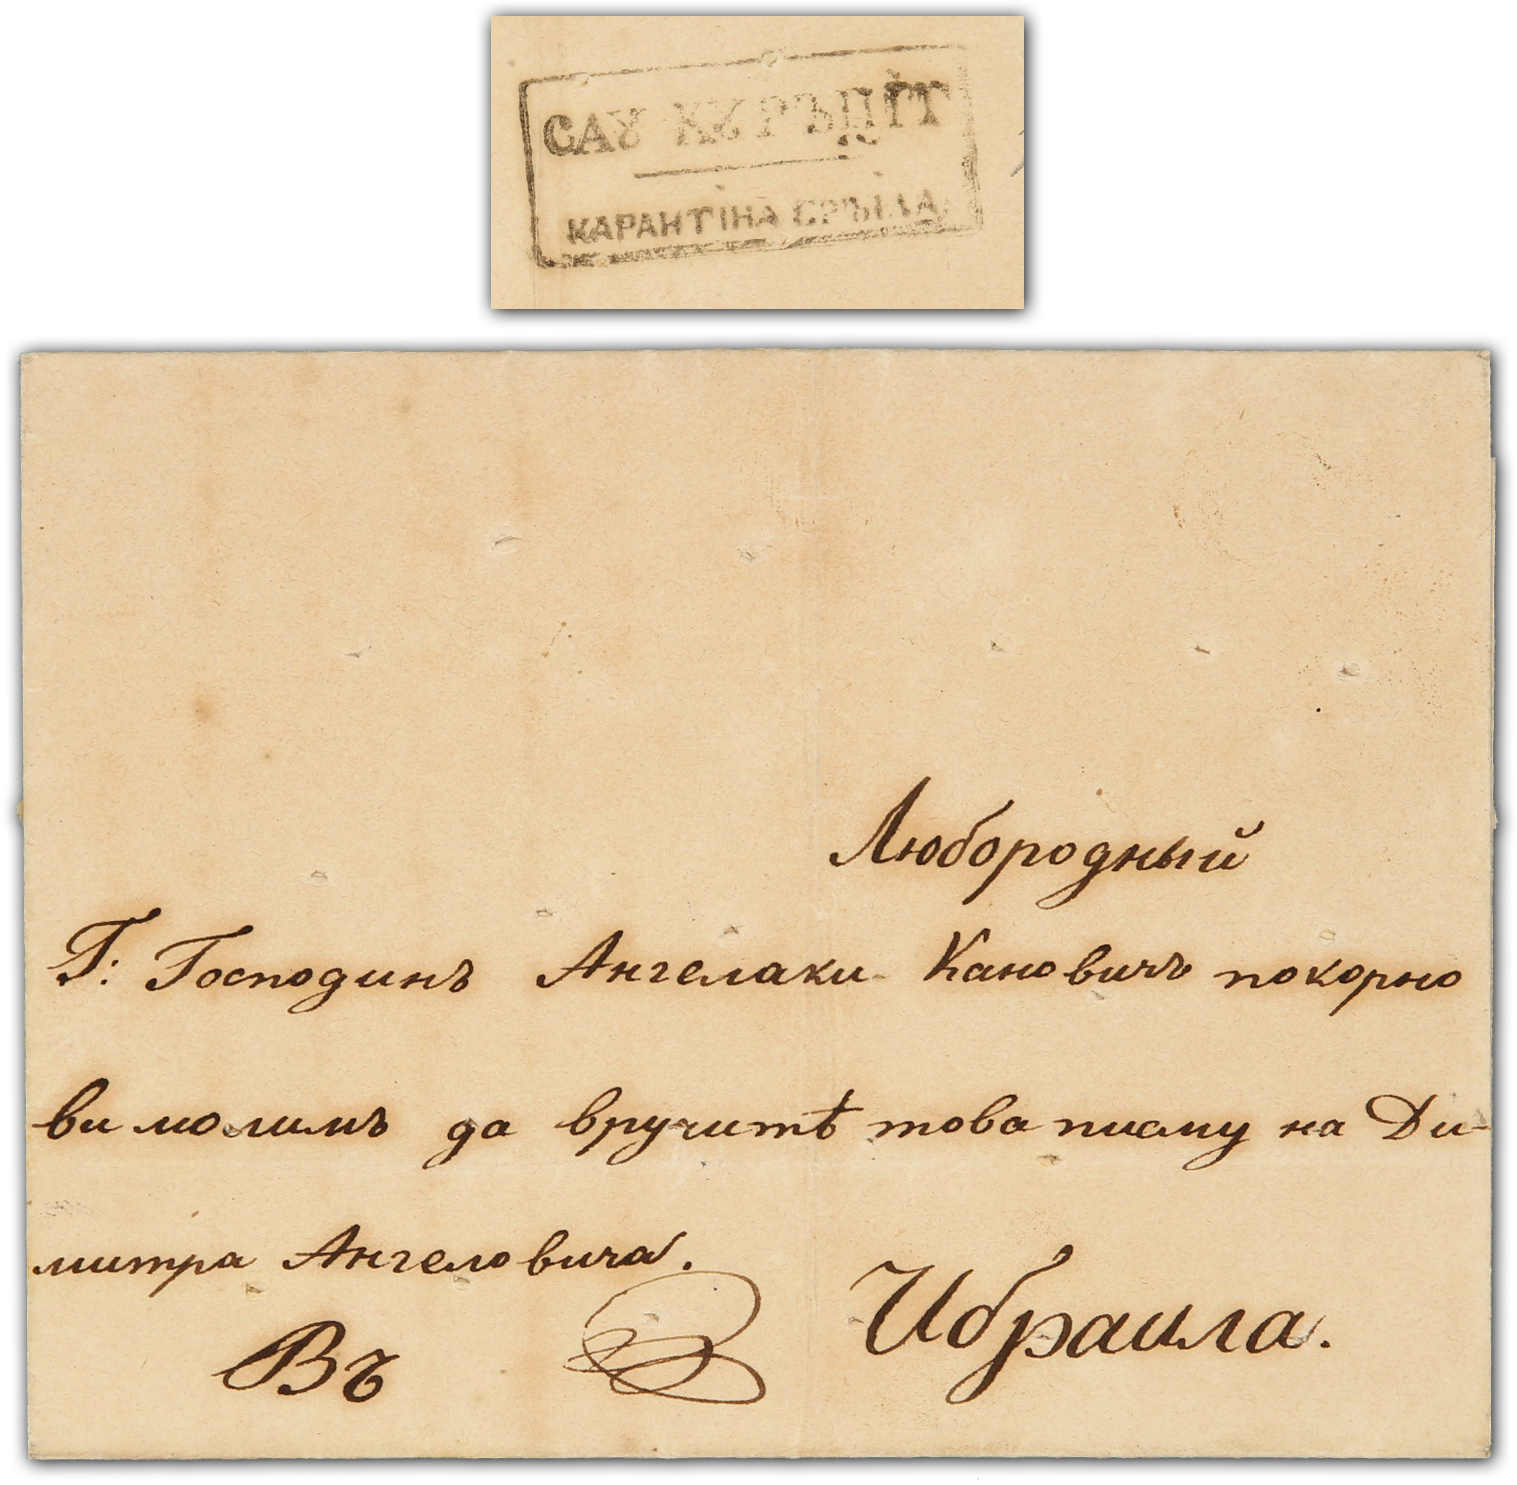 САȢ КȢРЪЦІТ
КАРАНТІНА БРЪІЛА
Любородный
Г: Господинъ Ангелаки Кановичъ покорно
ви молимъ да вручитѣ това писму на Ди-
митра Ангеловича.
Въ Ибраила.